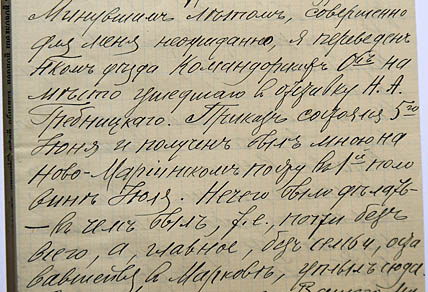 Минувшимъ лѣтомъ, совершенно
для меня неожиданно, я переведенъ
уѣзда Командорскихъ О-въ на
мѣсто ушедшаго в отставку Н. А.
Гребницкаго. Приказъ состоялся 5го
Іюня и полученъ былъ мною на
Ново-Маріинскомъ посту въ 1ой поло
винѣ Іюля. Нечего было дѣлать
– въ чемъ былъ, т.е., почти безъ
всего, а, главное, безъ семьи, оста
вавшейся в Марковѣ, уплылъ сюда.